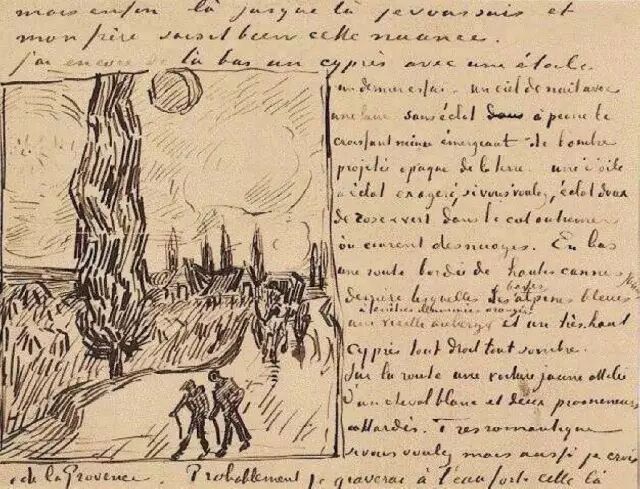 mais enfin là jusque là je vous sais et
mon frère saisit bien cette nuance.
J'ai encore de là bas un cyprès avec une étoile
un dernier essai – un ciel de nuit avec
une lune sans éclat dans à peine le
croissant mince émergeant de l'ombre
projetée opaque de la terre – une étoile
à éclat exagéré, si vous voulez, éclat doux
de rose & vert dans le ciel outremer
où courent des nuages. En bas
une route bordée de hautes cannes
derrière lesquelles les basses alpines bleues
à fenêtres illuminées orangées
une vieille auberge et un très haut
cyprès tout droit tout sombre.
Sur la route une voiture jaune attelée
d'un cheval blanc et deux promeneurs
attardés. Très romantique
si vous voulez mais aussi je crois
de la Provence. Probablement je graverai à l'eau forte celle là